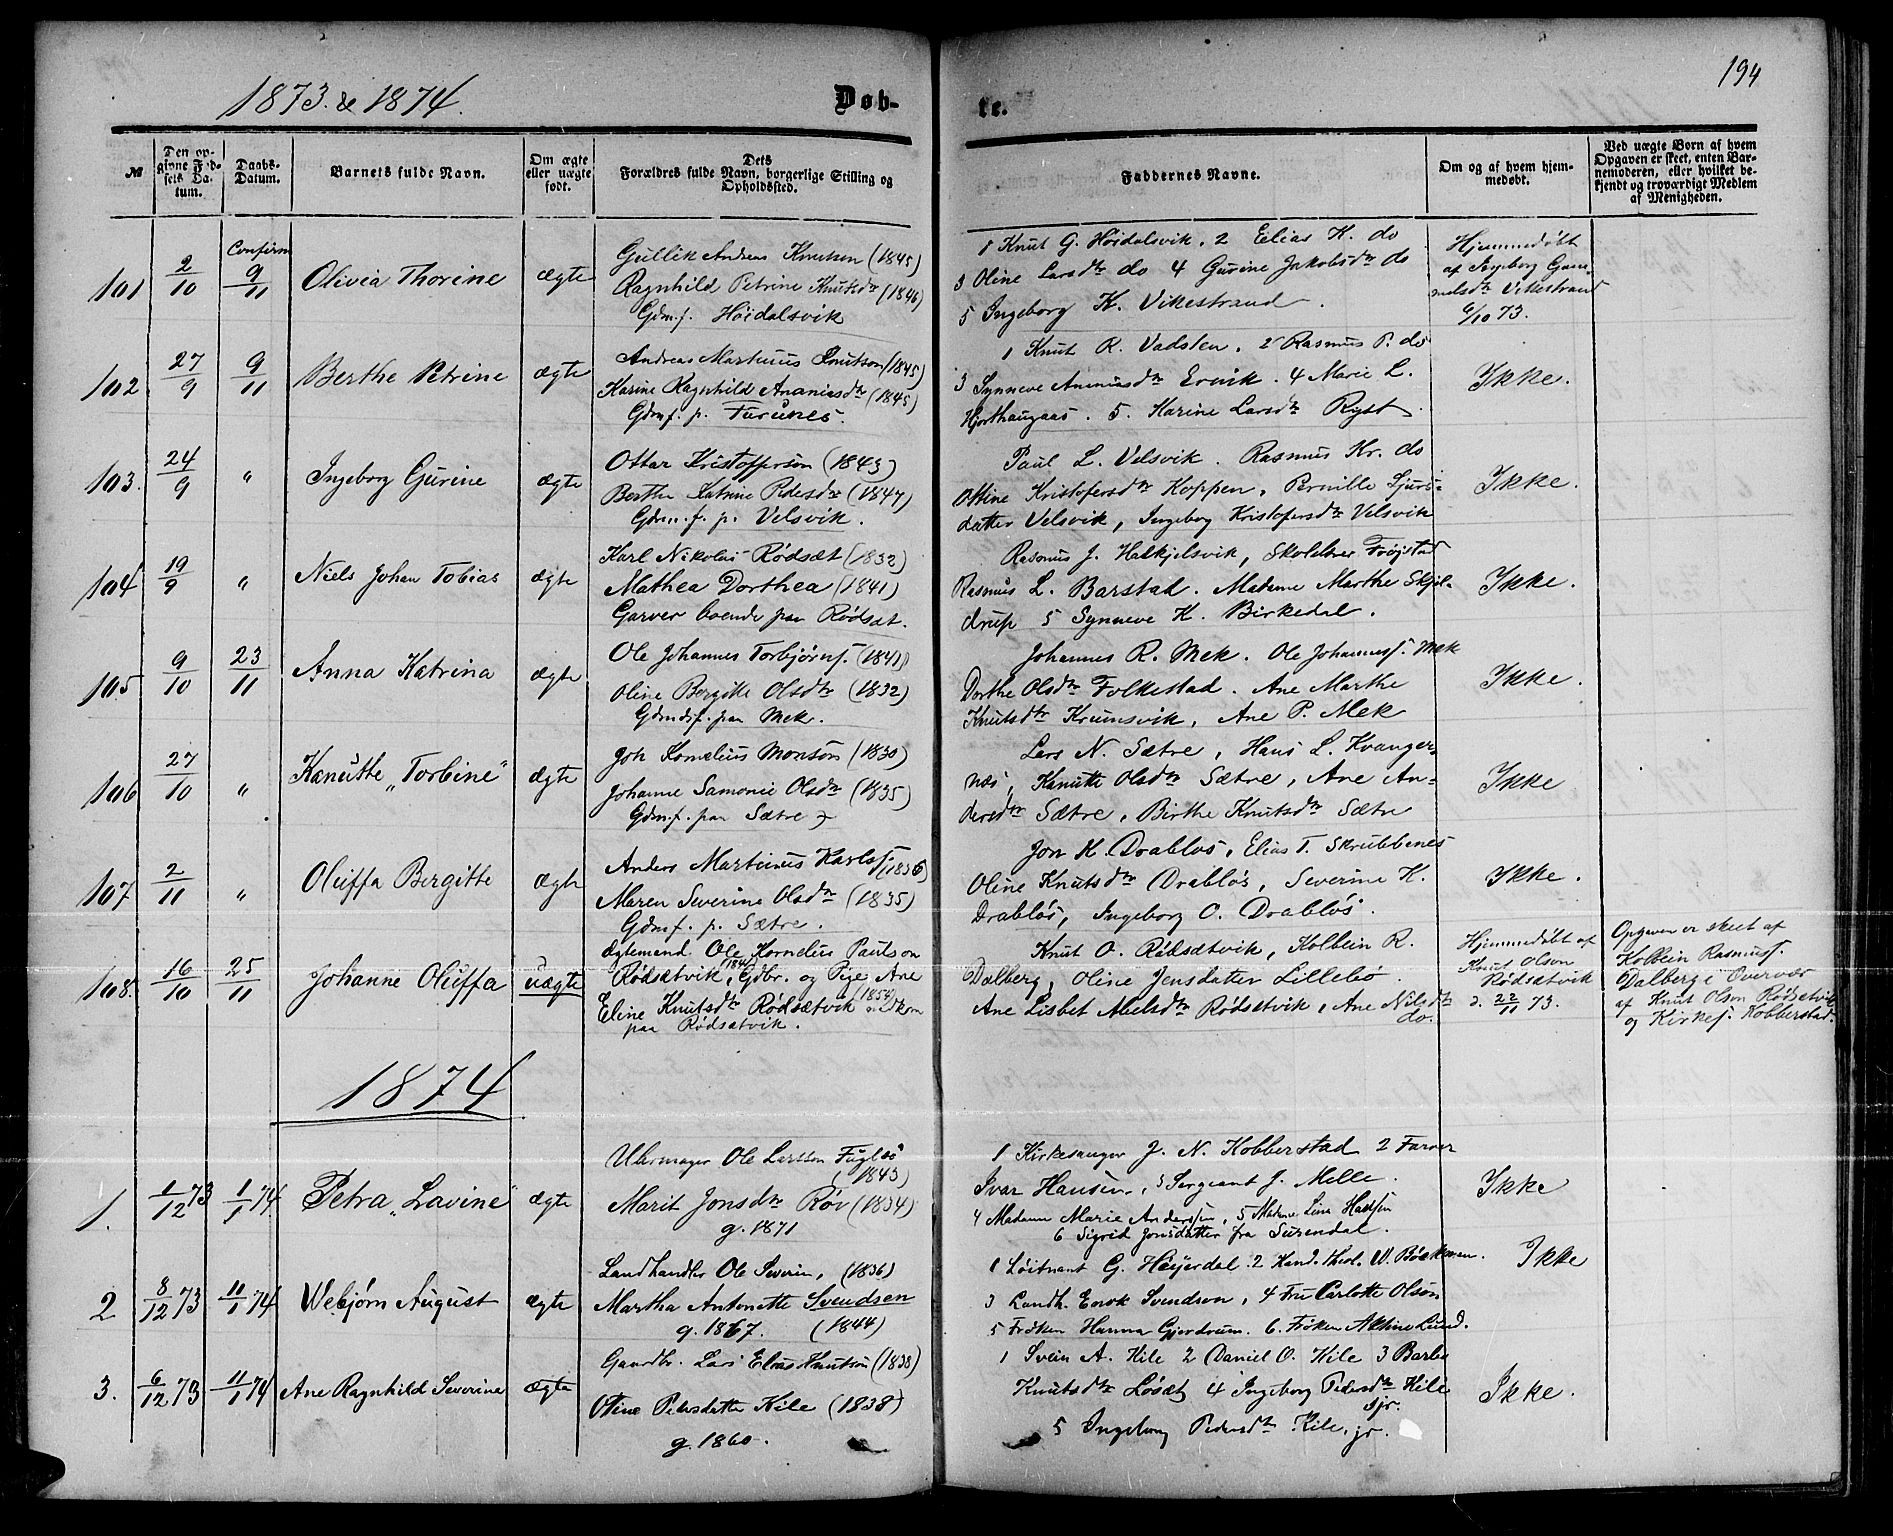 194
1873 & 1874.
Døb-
te.
№
Den op-
givne Fød-
sels Da-
tum.
Daabs-
Datum.
Barnets fulde Navn.
Om ægte
eller uægte
født.
Dets
Forældres fulde Navn, borgerlige Stilling og
Opholdssted.
Faddernes Navne.
Om og af hvem hjem-
medøbt.
Ved uægte Børn af hvem
Opgaven er skeet, enten Bar-
nemoderen, eller hvilket be-
kjendt og troværdigt Medlem
af Menigheden.
101
2/10
Confirm
9/11
Olivia Thorine
ægte
Gullik Andreas Knutson (1845)
Ragnhild Petrine Knutsdtr (1846)
Gdm.f. Höidalsvik
1 Knut G. Höidalsvik. 2 Elias K. do
3 Oline Larsdtr do 4 Gurine Jakobsdtr do
5 Ingeborg K. Vikestrand.
Hjemmedøbt
af Ingeborg Gam-
melsdtr Vikestrand
6/10 73.
102
27/9
9/11
Berthe Petrine
ægte
Andreas Martinus Knutson (1845)
Karine Ragnhild Ananiasdtr (1845)
Gdmf. p. Furunes.
1 Knut R. Vadsten. 2 Rasmus P. do
3 Synneve Ananiasdtr Ervik. 4 Marie L.
Hjorthaugaas. 5. Karine Larsdtr Ryst.
Ikke.
103.
24/9
"
Ingeborg Gurine
ægte
Ottar Kristofferson (1843)
Berthe Katrine Pedersdtr (1847)
Gdm.f. p. Velsvik.
Paul L. Velsvik. Rasmus Kr. do
Ottine Kristofersdtr Koppen, Pernille Sjurs-
datter Velsvik, Ingeborg Kristofersdtr Velsvik
Ikke.
104
19/9
"
Niels Johan Tobias
ægte
Karl Nikolai Rødsæt (1832)
Mathea Dorthea (1841)
Garver boende paa Rødsæt.
Rasmus J. Halkjelsvik, Skolelærer Frøjstad
Rasmus L. Barstad. Madame Marthe Skjel-
drup 5 Synneve K. Birkedal.
Ikke.
105
9/10
23/11
Anna Katrina
ægte
Ole Johannes Torbjørns. (1841)
Oline Bergitte Olsdtr (1832)
Gdmdsf. paa Mek.
Johannes R. Mek. Ole Johannesf. Mek
Dorthe Olsdtr Folkestad. Ane Marthe
Knutsdtr Krumsvik, Ane P. Mek
Ikke.
106
27/10
"
Kanutte „Torbine"
ægte
Joh Kornelius Monson (1830)
Johanne Samonie Olsdtr (1835)
Gdm.f. paa Sætre
Lars N. Sætre, Hans L. Kvanger-
næs, Kanutte Olsdtr Sætre, Ane An-
dersdtr Sætre, Birthe Knutsdtr Sætre
Ikke
107
2/11
"
Oluffa Bergitte
ægte
Anders Martinus Karlsf. (1836)
Maren Severine Olsdtr (1835)
Gdmf. p. Sætre.
Jon K. Drabløs, Elias T. Skrubbenes
Oline Knutsdtr Drabløs, Severine K.
Drabløs, Ingeborg O. Drabløs.
Ikke.
108.
16/10
25/11
Johanne Oluffa
uægte
Ægtemand Ole Kornelius Paulson
Rødsætvik, Gdbr. og Pige Ane
Eline Knutsdtr (1854) Rødsætvik
paa Rødsætvik.
Knut O. Rødsætvik, Kolbein R.
Dalberg, Oline Jensdatter Lillebø
Ane Lisbet Nielsdtr Rødsætvik, Ane Nilsdtr
do.
Hjemmedøbt af
Knut Olson
Rødsætvik
d. 22/11 73.
Opgaven er skeet af
Kolbein Rasmusf.
Dalberg i Overvær
af Knut Olson Rødsætvik
og Kirkes. Kobberstad.
1874
1.
1/12 73
1/1 74
Petra „Lavine"
ægte
Uhrmager Ole Larsson Fuglsö
(1843)
Marit Jonsdtr Røv (1834)
g. 1871
1 Kirkesanger J. N. Kobberstad 2 Farver
Ivar Hansen, 3 Sergeant J. Melle.
4 Madam Marie Anderssen, 5 Madame Lina Hanssen
6 Sigrid Jonsdatter fra Surendal.
Ikke
2
8/12 73
11/1 74
Webjørn August
ægte
Landhandler Ole Severin, (1836)
Martha Antonette Svendsen
g. 1867. (1844)
1 Løitnant G. Heyerdal. 2 Kand. theol. W. Böckman.
3 Landh. Enok Svendson, 4 Fru Carlotte Olson
5 Frøken Hanna Gjerdrum. 6. Frøken Aktine Lund.
Ikke
3.
6/12 73
11/1 74
Ane Ragnhild Severine
ægte
Gaardbr. Lars Elias Knutson (1838)
Oline Pedersdatter Kile (1838)
g. 1860.
1 Svein A. Kile 2 Daniel O. Kile 3 Barbe
Knutsdtr Løsæt 4 Ingeborg Pedersdtr Kile
sjr.
5 Ingeborg Pedersdtr Kile, jr.
Ikke.